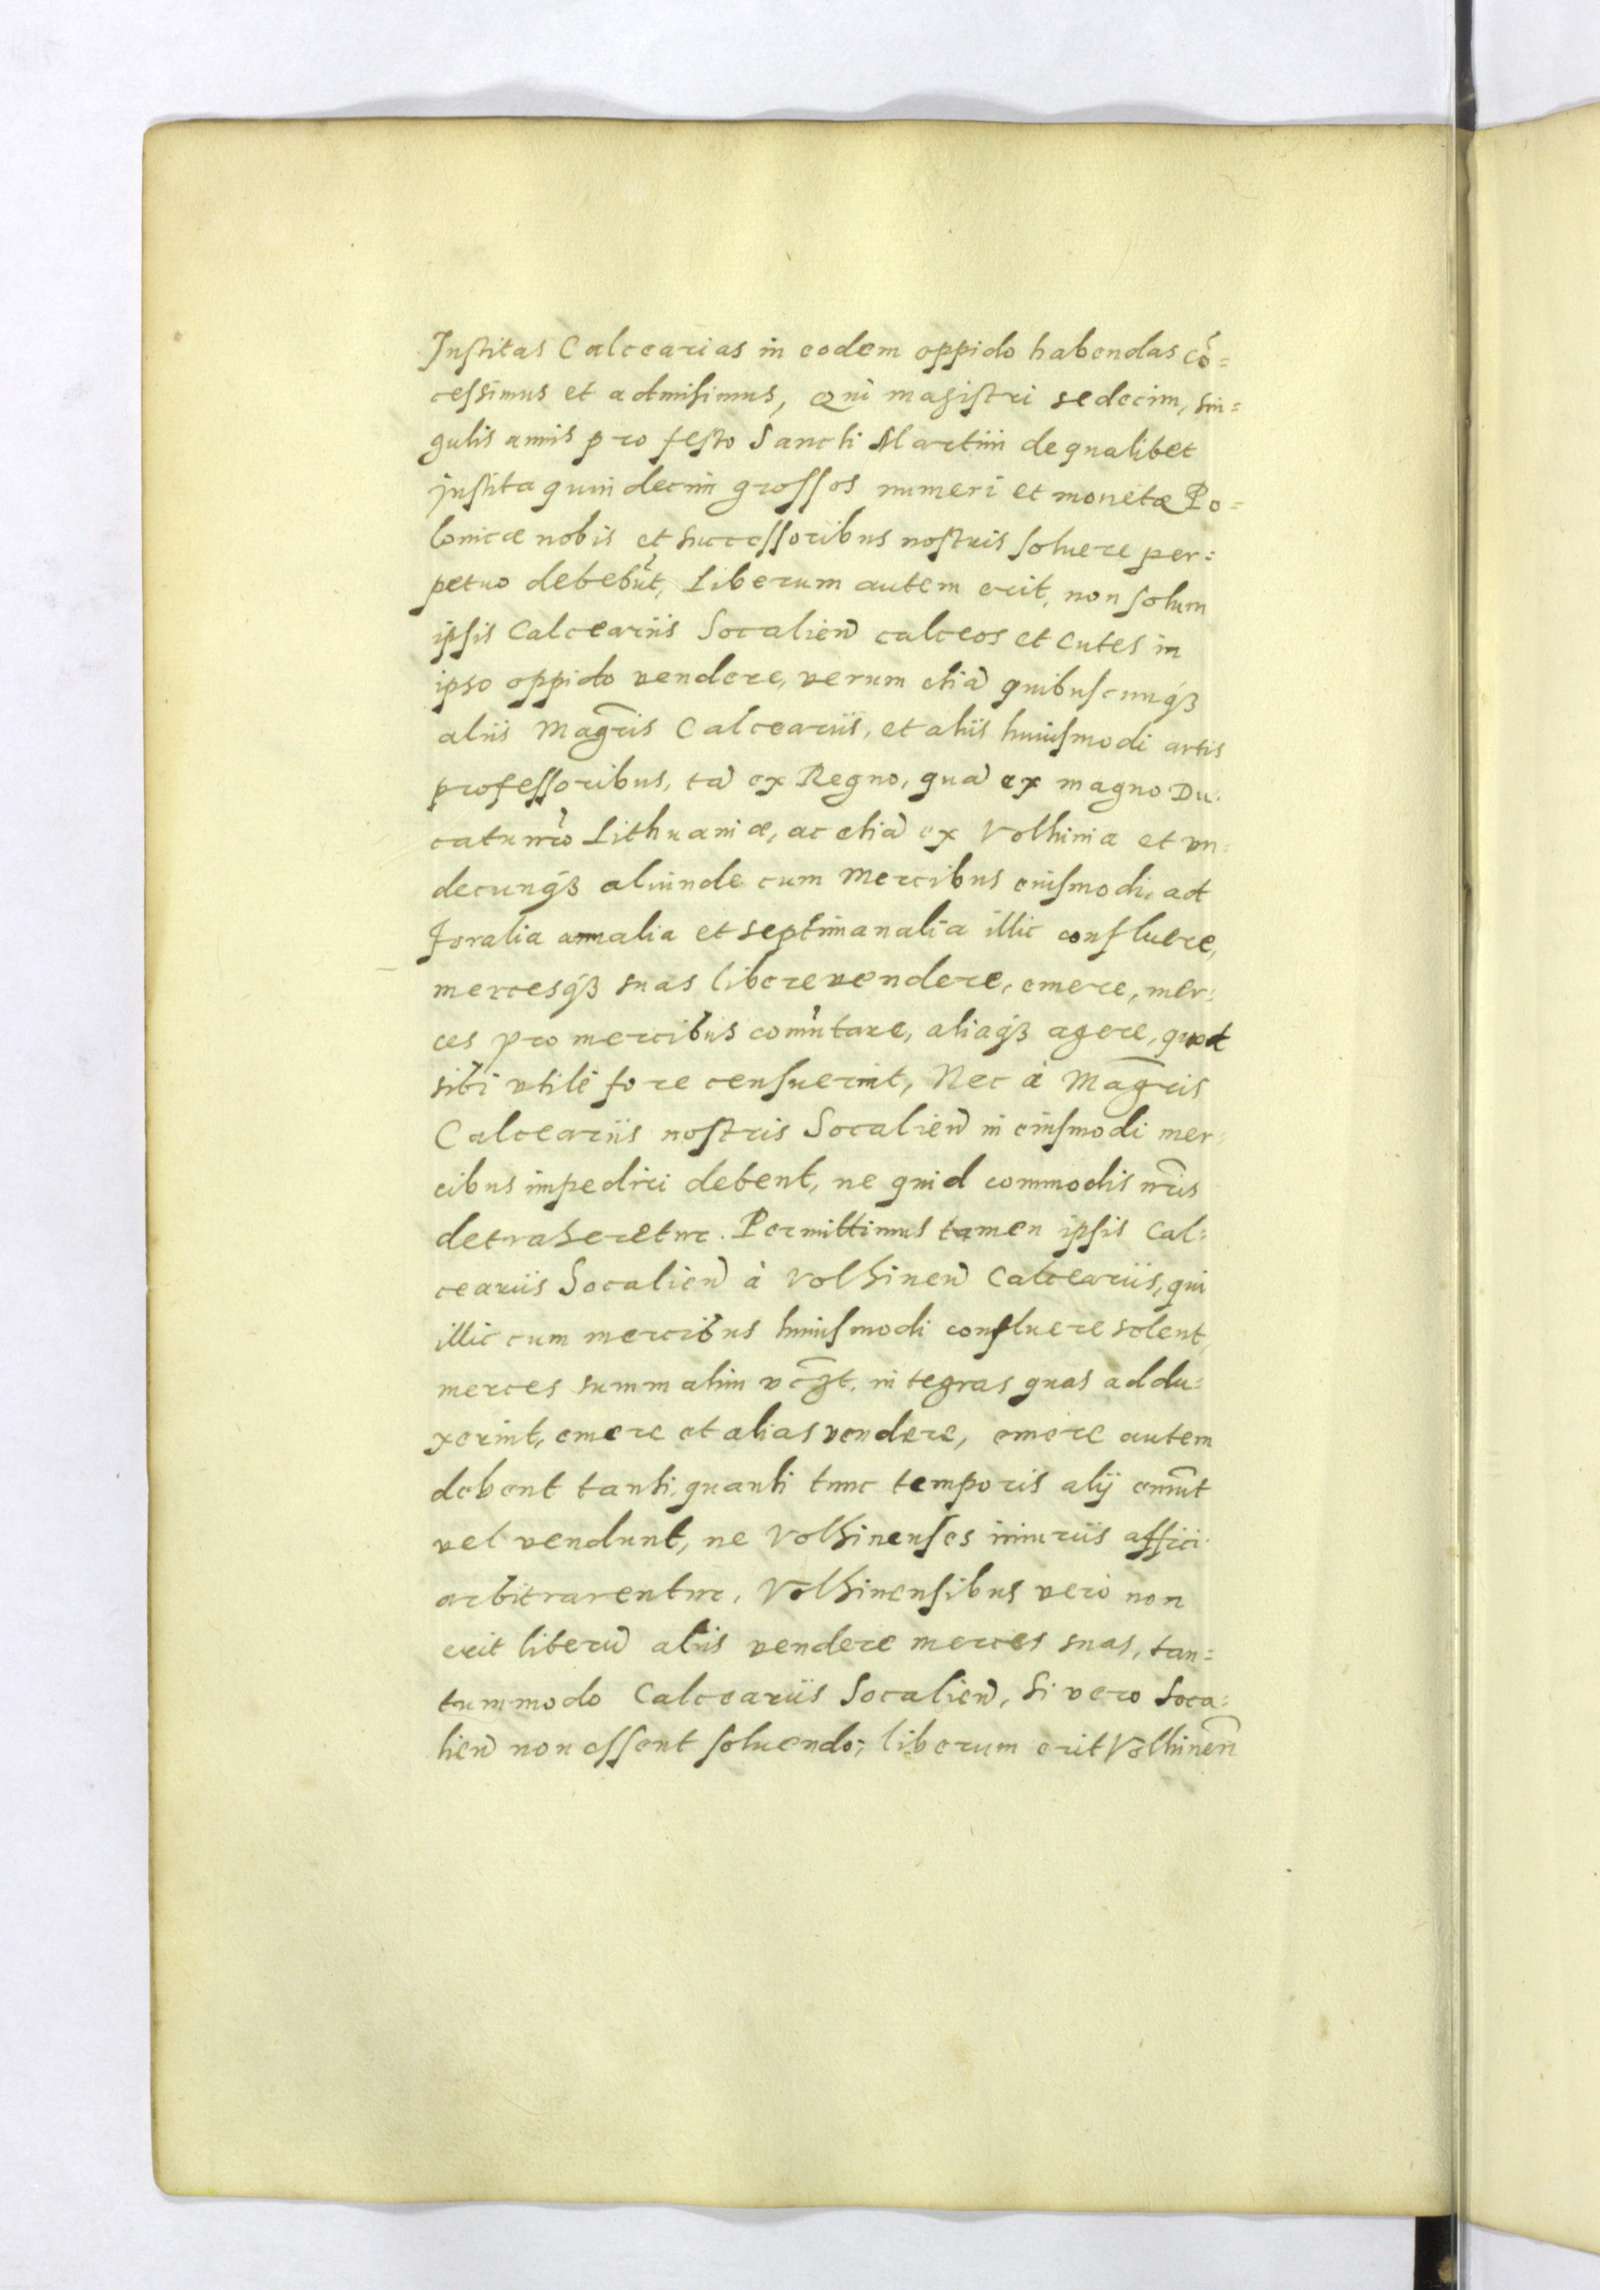 Institas Calcearias in eodem oppido habendas cõ=
cessimus et admisimus, Qui magistri sedecim, sin=
gulis annis pro festo Sancti Martini de qualibet
justita quindecim grossos numeri et monetæ Po=
lonicæ nobis et successoribus nostris soluere per=
petuo debebũt, Liberum autem erit, non solum
ipsis Calceariis Socalien̄ calceos et Cutes in
ipso oppido vendere, verum etiã quibuscunqȝ
aliis Magr̃is Calceariis, et aliis huiusmodi artis
professoribus, tã ex Regno, quã ex magno Du=
catu nr̃o Lithuaniæ, ac etiã ex Volhinia et vn=
decunqȝ aliunde cum Mercibus eiusmodi, ad
foralia annalia et septimanalia illic confluere,
mercesqȝ suas libere vendere, emere, mer=
ces pro mercibus com̃utare, aliaqȝ agere, quod
sibi vtile fore censuerint, Nec à Magr̃is
Calceariis nostris Socalien̄ in eiusmodi mer=
cibus impediri debent, ne quid commodis nr̃is
detraheretur. Permittimus tamen ipsis Cal=
ceariis Socalien̄ à Volhinen̄ Calceariis, qui
illic cum mercibus huiusmodi confluere solent,
merces summatim vc̃zt. integras quas addu=
xerint, emere et alias vendere, emere autem
debent tanti, quanti tunc temporis alij emũt
vel vendunt, ne Volhinenses iniuriis affici
arbitrarentur, Volhinensibus vero non
erit liberũ aliis vendere merces suas, tan=
tummodo Calceariis Socalien̄, Si vero Soca=
lien̄ non essent soluendo; liberum erit Volhinen̄